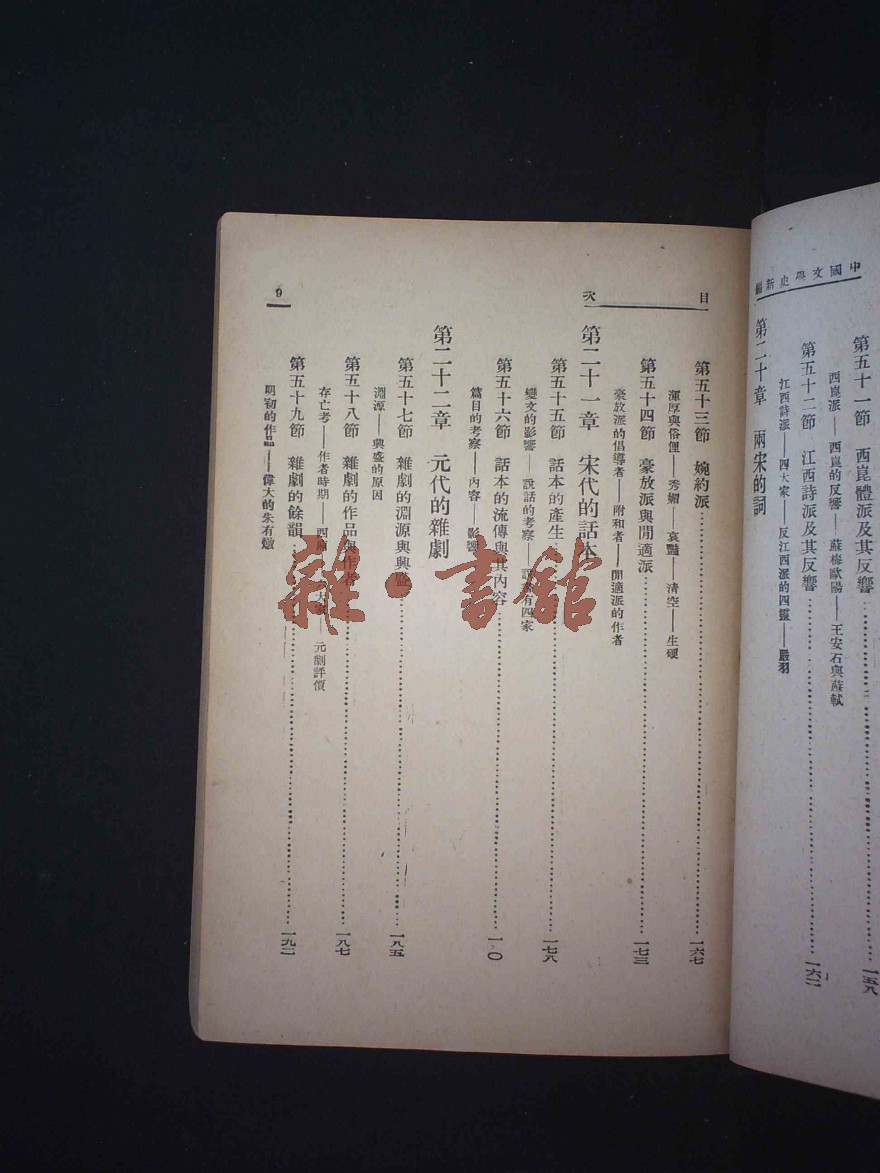 中國文學史新編
第五十一節 西崑體派及其反響……一五八
西崑派——西崑的反響——蘇梅歐陽——王安石與蘇軾
第五十二節 江西詩派及其反響……一六二
江西詩派——四大家——反江西派的四靈——嚴羽
第二十章 兩宋的詞
目次
第五十三節 婉約派……一六七
渾厚與俗俚——秀媚——哀豔——清空——生硬
第五十四節 豪放派與閒適派……一七三
豪放派的倡導者——附和者——閒適派的作者
第二十一章 宋代的話本
第五十五節 話本的產生……一七八
變文的影響——說話的考察——說話有四家
第五十六節 話本的流傳與其內容……一 〇
篇目的考察——內容——影響
第二十二章 元代的雜劇
第五十七節 雜劇的淵源與興盛……一八五
淵源——興盛的原因
第五十八節 雜劇的作品與作者……一八七
存亡考——作者時期——四 大家——元劇評價
第五十九節 雜劇的餘韻……一九二
明初的作品——偉大的朱有燉
9
雜·書館